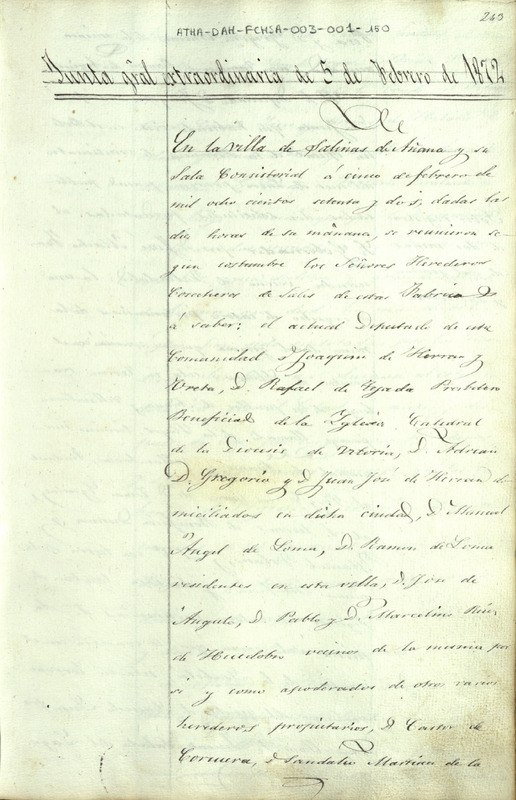 263
ATHA-DAH-FCHSA-003-001-150
Junta gral extraordinaria de 5 de Febrero de 1872
En la villa de Salinas de Añana y su
Sala Consistorial á cinco de febrero de
mil ocho cientos setenta y dos, dadas las
diez horas de su mañana, se reunieron se-
gun costumbre los Señores Herederos
Cosecheros de Sales de estas Fabricas
á saber: el actual Diputado de esta
Comunidad D Joaquin de Herran y
Ureta, D. Rafael de Tejada Presbitero
Beneficial de la Yglesia Catedral
de la Diocesis de Vitoria, D. Adrian
D. Gregorio y D Juan José de Herran do-
miciliados en dicha ciudad, D. Manuel
Angel de Loma, D. Ramon de Loma
residentes en esta villa, D. José de
Angulo, D. Pablo y D. Marcelino Ruiz
de Huidobro vecinos de la misma por
si y como apoderados de otros varios
herederos propietarios, D Castor de
Corcuera, D Sandalio Martinez de la